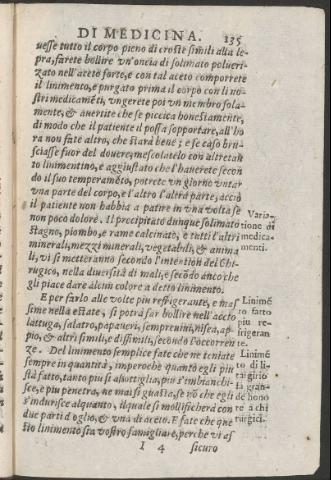 DI MEDICINA. 135
uesse tutto il corpo pieno di croste simili alla le-
pra, farete bollire vn'oncia di solimato polueri-
zato nell'aceto forte, e con tal aceto comporrete
il linimento, e purgato prima il corpo con li no-
stri medicamēti, vngerete poi vn membro sola-
mente, & auertite che se piccica honestamente,
di modo che il patiente il possa sopportare, all'ho
ra non fate altro, che starà bene; e se caso bru-
sciasse fuor del douere, mescolatelo con altretan
to linimentino, e aggiustato che l'hauerete secon
do il suo temperamēto, potrete vn giorno vntar
vna parte del corpo, e l'altro l'altra parte, acciò
il patiente non habbia a patire in vna volta se
non poco dolore. Il precipitato dunque solimato
stagno, piombo, e rame calcinato, e tutti l'altri
minerali, mezzi minerali, vegetabili, & anima
li, vi si metteranno secondo l'intention del Chi-
rugico, nella diuersità di mali, e secōdo anco che
gli piace dare alcun colore a detto linimento.
Varia-
tione di
medica-
menti.
E per farlo alle volte piu reffigerante, e mas
sime nella estate, si potrà far bollire nell'acceto
lattuga, salatro, papaueri, sempreuiui, nisea, ap-
pio, & altri simili, e dissimili, secondo l'occorren
ze. Del linimento semplice fate che ne teniate
sempre in quantità, imperoche quanto egli piu
stà fatto, tanto piu si assottiglia, piu s'imbianchi-
sce, e piu penetra, ne mai si guasta, se nō che egli
s'indurisce alquanto, ilquale si mollificherà con
due parti d'oglio, & vna di aceto. E fate che que
sto linimento sia vostro famigliare, perche vi as
Linimē
to fatto
piu re-
frigeran
te.
Linimē
to di li-
targirio
fa gran-
de hono
re a chi
rurgici.
I 4 sicuro